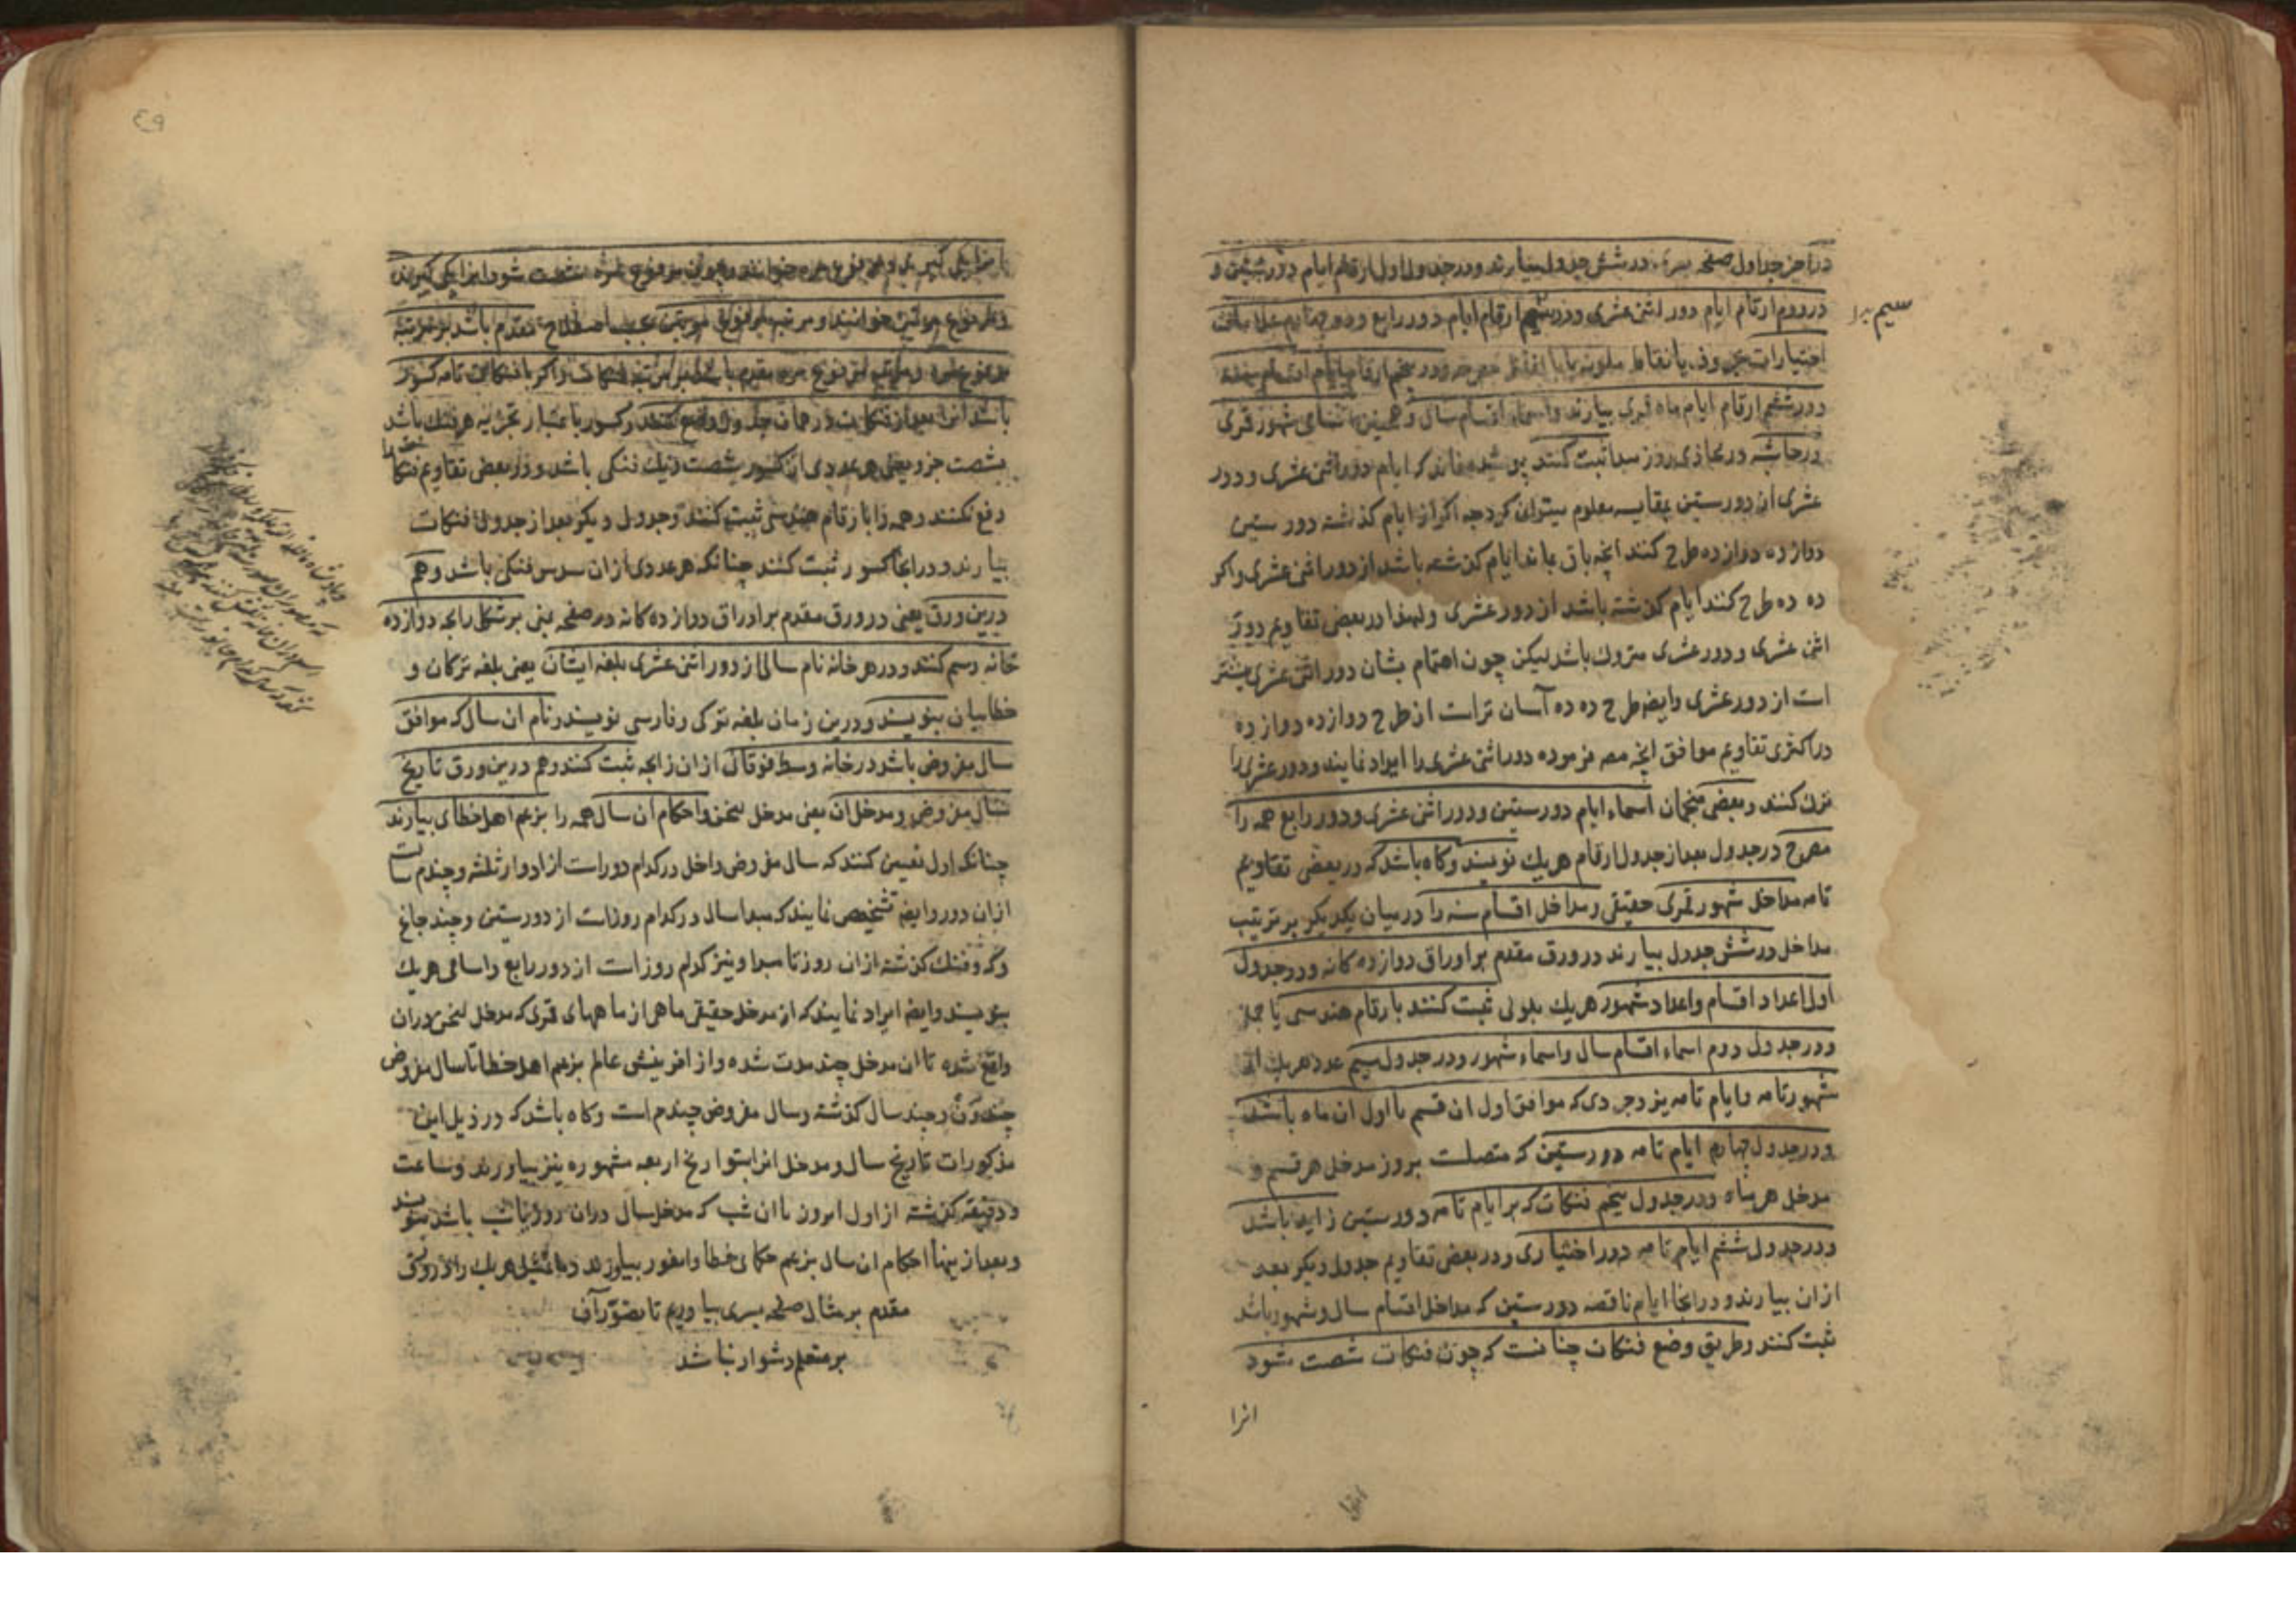 در آخر جداول صفحه یسری در شش جدول بیارند و در جدول اول ارقام ایام دور ستین و
در دوم ارقام ایام دور اثنی عشری و در سیم ارقام ایام دور رابع و در چهارم علامات
سیم را
اختیارات بحروف یا نقاط ملونه یا بالفظ مصرحه و در پنجم ارقام ایام اقسام سنه
و در ششم ارقام ایام ماه قمری بیارند و اسماء اقسام سال و همچنین اسمای شهور قمری
در حاشیه در محاذی روز مبدا ثبت کنند پوشیده نماند که ایام دور اثنی عشری و دور
عشری از دور ستین بمقایسه معلوم میتوان کرد چه اکر از ایام کذشته دور ستین
دوازده دوازده طرح کنند انچه باقی ماند ایام کذشته باشد از دور اثنی عشری و اکر
ده ده طرح کنند ایام کذشته باشد از دور عشری و لهذا در بعضی تقاویم دور
اثنی عشری و دور عشری متروك باشد لیکن چون اهتمام بشان دور اثنی عشری بیشتر
است از دور عشری وایضا طرح ده ده آسان تراست از طرح دوازده دوازده
در اکثری تقاویم موافق انچه مصـ فرموده دور اثنی عشری را ایراد نمایند و دور عشری را
ترك کنند و بعضی منجمان اسماء ایام دور ستین و دور اثنی عشری و دور رابع همه را
مصرح در جدول بعد از جدول ارقام هریك نویسند و کاه باشد که در بعضی تقاویم
تامه مداخل شهور قمری حقیقی و مداخل اقسام سنه را در میان یکدیکر بر ترتیب
مداخل در شش جدول بیارند در ورق مقدم بر اوراق دوازده کانه و در جدول
اول اعداد اقسام و اعداد شهور هریك بلونی ثبت کنند بارقام هندسی یا جمل
و در جدول دوم اسماء اقسام سال و اسماء شهور و در جدول سیم عدد هریك از
شهور تامه و ایام تامه یزدجردی که موافق اول ان قسم یا اول ان ماه باشد
و در جدول چهارم ایام تامه دور ستین که متصلست بروز مدخل هر قسم و
مدخل هر ماه و در جدول پنجم فنکات که بر ایام تامه دور ستین زاید باشد
و در جدول ششم ایام تامه دور اختیاری و در بعضی تقاویم جدول دیکر بعد
از ان بیارند و در انجا ایام ناقصه دور ستین که مداخل اقسام سال و شهور باشد
ثبت کنند و طریق وضع فنکات چنانست که چون فنکات شصت شود
انرا
انرا یکی کیرند و مرفوع مره خوانند و چون مرفوع مره شصت شود انرا یکی کیرند
و مرفوع مرتین خوانند و مرتبه مرفوع مرتین بحسب اصطلاح مقدم باشد بر مرتبه
مرفوع مره و مرتبه مرفوع مره مقدم باشد بر مرتبه فنکات و اکر با فنکات تامه کسور
باشد انرا بعد از فنکات در همان جدول وضع کنند و کسور باعتبار تجزیه هر فنك باشد
بشصت جزو یعنی هر عددی از کسور شصت ذیك فنکی باشد و در بعض تقاویم فنکات را
رفع نکنند و همه را بارقام هندسی ثبت کنند و جدول دیکر بعد از جدول فنکات
بیارند و در انجا کسور ثبت کنند چنانکه هر عددی از ان سدس فنکی باشد و هم
درین ورق یعنی در ورق مقدم بر اوراق دوازده کانه در صفحه یمنی بر شکل رایجه دوازده
خانه رسم کنند و در هر خانه نام سالی از دور اثنی عشری بلغه ایشان یعنی بلغه ترکان و
خطاییان بنویسند و درین زمان بلغه ترکی و فارسی نویسند و نام ان سال که موافق
سال مفروض باشد در خانه وسط فوقانی از ان زایجه ثبت کنند و هم درین ورق تاریخ
سال مفروض و مدخل ان یعنی مدخل لیخن و احکام ان سال همه را بزعم اهل خطای بیارند
چنانکه اول تعیین کنند که سال مفروض داخل در کدام دوراست از ادوار ثلثه و چندم سالست
از ان دور وایضا تشخیص نمایند که مبدا سال در کدام روزاست از دور ستین و چند جاغ
و که و فنك کذشته از ان روز تا مبدا و نیز کدام روز است از دور رابع و اسامی هریك
بنویسند وایضا ایراد نمایند که از مدخل حقیقی ماهی از ماههای قمری که مدخل لیخن در ان
واقع شده تا ان مدخل چند مدت شده و از افرینش عالم بزعم اهل خطا تا سال مفروض
چند ون و چند سال کذشته و سال مفروض چندم است و کاه باشد که در ذیل این
مذکورات تاریخ سال و مدخل انرا بتواریخ اربعه مشهوره نیز بیاورند و ساعت
و دقیقه کذشته از اول ان روز یا ان شب که مدخل سال در ان روز یا شب باشد بنویسند
و بعد از ینها احکام ان سال بزعم حکمای خطا و ایغور بیاورند و ما تمثیل هریك را در ورق
مقدم بر مثال صفحه یسری بیاوریم تا تصور آن
بر متعلم دشوار نباشد